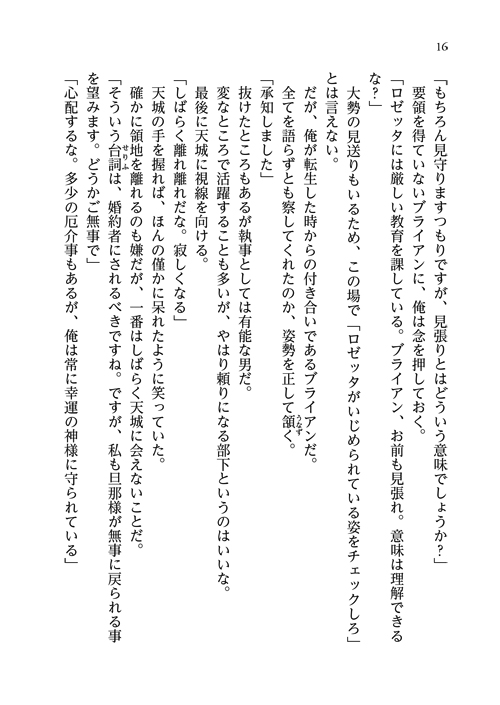 16
「もちろん見守りますつもりですが、見張りとはどういう意味でしょうか？」
要領を得ていないブライアンに、俺は念を押しておく。
「ロゼッタには厳しい教育を課している。ブライアン、お前も見張れ。意味は理解できる
な？」
大勢の見送りもいるため、この場で「ロゼッタがいじめられている姿をチェックしろ」
とは言えない。
だが、俺が転生した時からの付き合いであるブライアンだ。
全てを語らずとも察してくれたのか、姿勢を正して頷く。
「承知しました」
抜けたところもあるが執事としては有能な男だ。
変なところで活躍することも多いが、やはり頼りになる部下というのはいいな。
最後に天城に視線を向ける。
「しばらく離れ離れだな。寂しくなる」
天城の手を握れば、ほんの僅かに呆れたように笑っていた。
確かに領地を離れるのも嫌だが、一番はしばらく天城に会えないことだ。
「そういう台詞は、婚約者にされるべきですね。ですが、私も旦那様が無事に戻られる事
を望みます。どうかご無事で」
「心配するな。多少の厄介事もあるが、俺は常に幸運の神様に守られている」